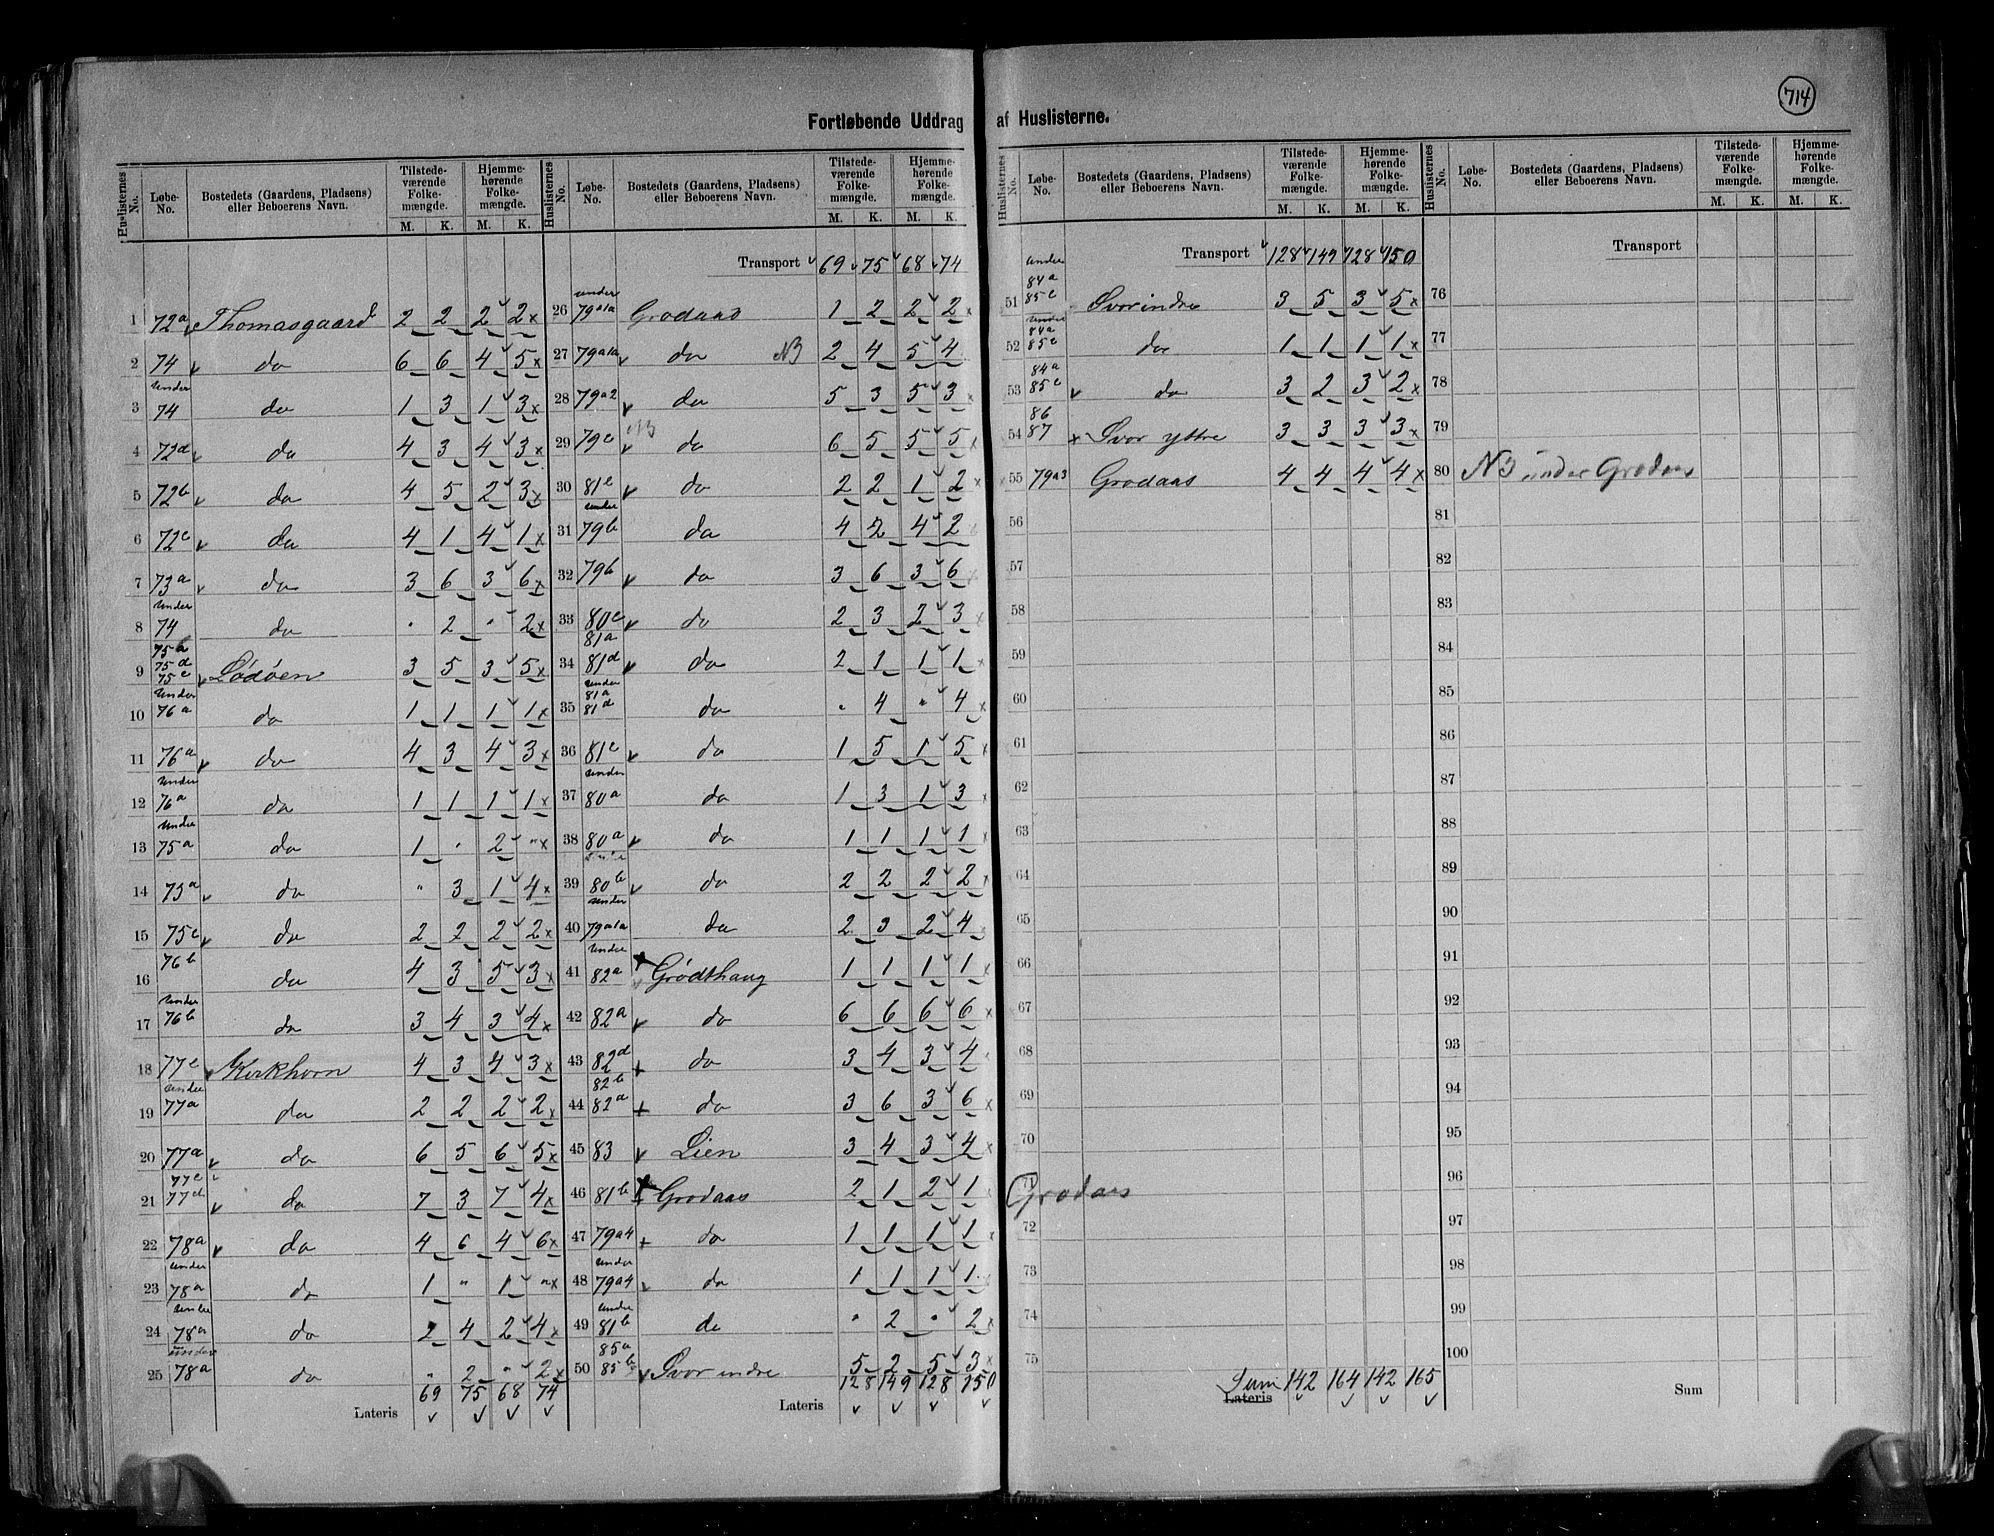 714
Fortløbende Uddrag af Huslisterne.
Huslisternes No. Løbe-No. Bostedets (Gaardens, Pladsens) eller Beboerens Navn. Tilstedeværende Folkemængde. M. K. Hjemmehørende Folkemængde. M. K.
1 72a Thomasgaard 2 2 2 2
2 74 do 6 6 4 5
3 under 74 do 1 3 1 3
4 72d do 4 3 4 3
5 72b do 4 5 2 3
6 72c do 4 1 4 1
7 73a do 3 6 3 6
8 under 74 do " 2 " 2
9 75b 75d 75e Lødøen 3 5 3 5
10 under 76a do 1 1 1 1
11 76a do 4 3 4 3
12 under 76a do 1 1 1 1
13 under 75a do 1 " 2 "
14 75a do " 3 1 4
15 75c do 2 2 2 2
16 76b do 4 3 5 3
17 under 76b do 3 4 3 4
18 77c Kirkhorn 4 3 4 3
19 under 77a do 2 2 2 2
20 77a do 6 5 6 5
21 77c 77d do 7 3 7 4
22 78a do 4 6 4 6
23 under 78a do 1 " 1 "
24 under 78a do 2 4 2 4
25 under 78a do " 2 " 2
69 75 68 74
Lateris
Huslisternes No. Løbe-No. Bostedets (Gaardens, Pladsens) eller Beboerens Navn. Tilstedeværende Folkemængde. M. K. Hjemmehørende Folkemængde. M. K.
Transport 69 75 68 74
26 under 79a1a Grodaas 1 2 2 2
27 79a1a do NB 2 4 5 4
28 79a2 do 5 3 5 3
29 79c NB do 6 5 5 5
30 81c do 2 2 1 2
31 under 79b do 4 2 4 2
32 79b do 3 6 3 6
33 80c do 2 3 2 3
34 81a 81d do 2 1 1 1
35 under 81a 81d do " 4 " 4
36 81c do 1 5 1 5
37 under 80a do 1 3 1 3
38 80a do 1 1 1 1
39 80b do 2 2 2 2
40 under 79a1a do 2 3 2 4
41 under 82a Grødthaug 1 1 1 1
42 82a do 6 6 6 6
43 82d do 3 4 3 4
44 82b 82a do 3 6 3 6
45 83 Lien 3 4 3 4
46 81b Grodaas 2 1 2 1
47 79a4 do 1 1 1 1
48 under 79a4 do 1 1 1 1
49 under 81b do " 2 " 2
50 85a 85b Svor indre 5 2 5 3
128 149 128 150
Lateris
Huslisternes No. Løbe-No. Bostedets (Gaardens, Pladsens) eller Beboerens Navn. Tilstedeværende Folkemængde. M. K. Hjemmehørende Folkemængde. M. K.
Transport 128 149 128 150
51 under 84a 85c Svor indre 3 5 3 5
52 under 84a 85c do 1 1 1 1
53 84a 85c do 3 2 3 2
54 86 87 Svor yttre 3 3 3 3
55 79a3 Grodaas 4 4 4 4
56
57
58
59
60
61
62
63
64
65
66
67
68
69
70
71 Grodaas
72
73
74
75
Sum 142 164 142 165
Lateris
Huslisternes No. Løbe-No. Bostedets (Gaardens, Pladsens) eller Beboerens Navn. Tilstedeværende Folkemængde. M. K. Hjemmehørende Folkemængde. M. K.
Transport
76
77
78
79
80 NB under Grodaas
81
82
83
84
85
86
87
88
89
90
91
92
93
94
95
96
97
98
99
100
Sum